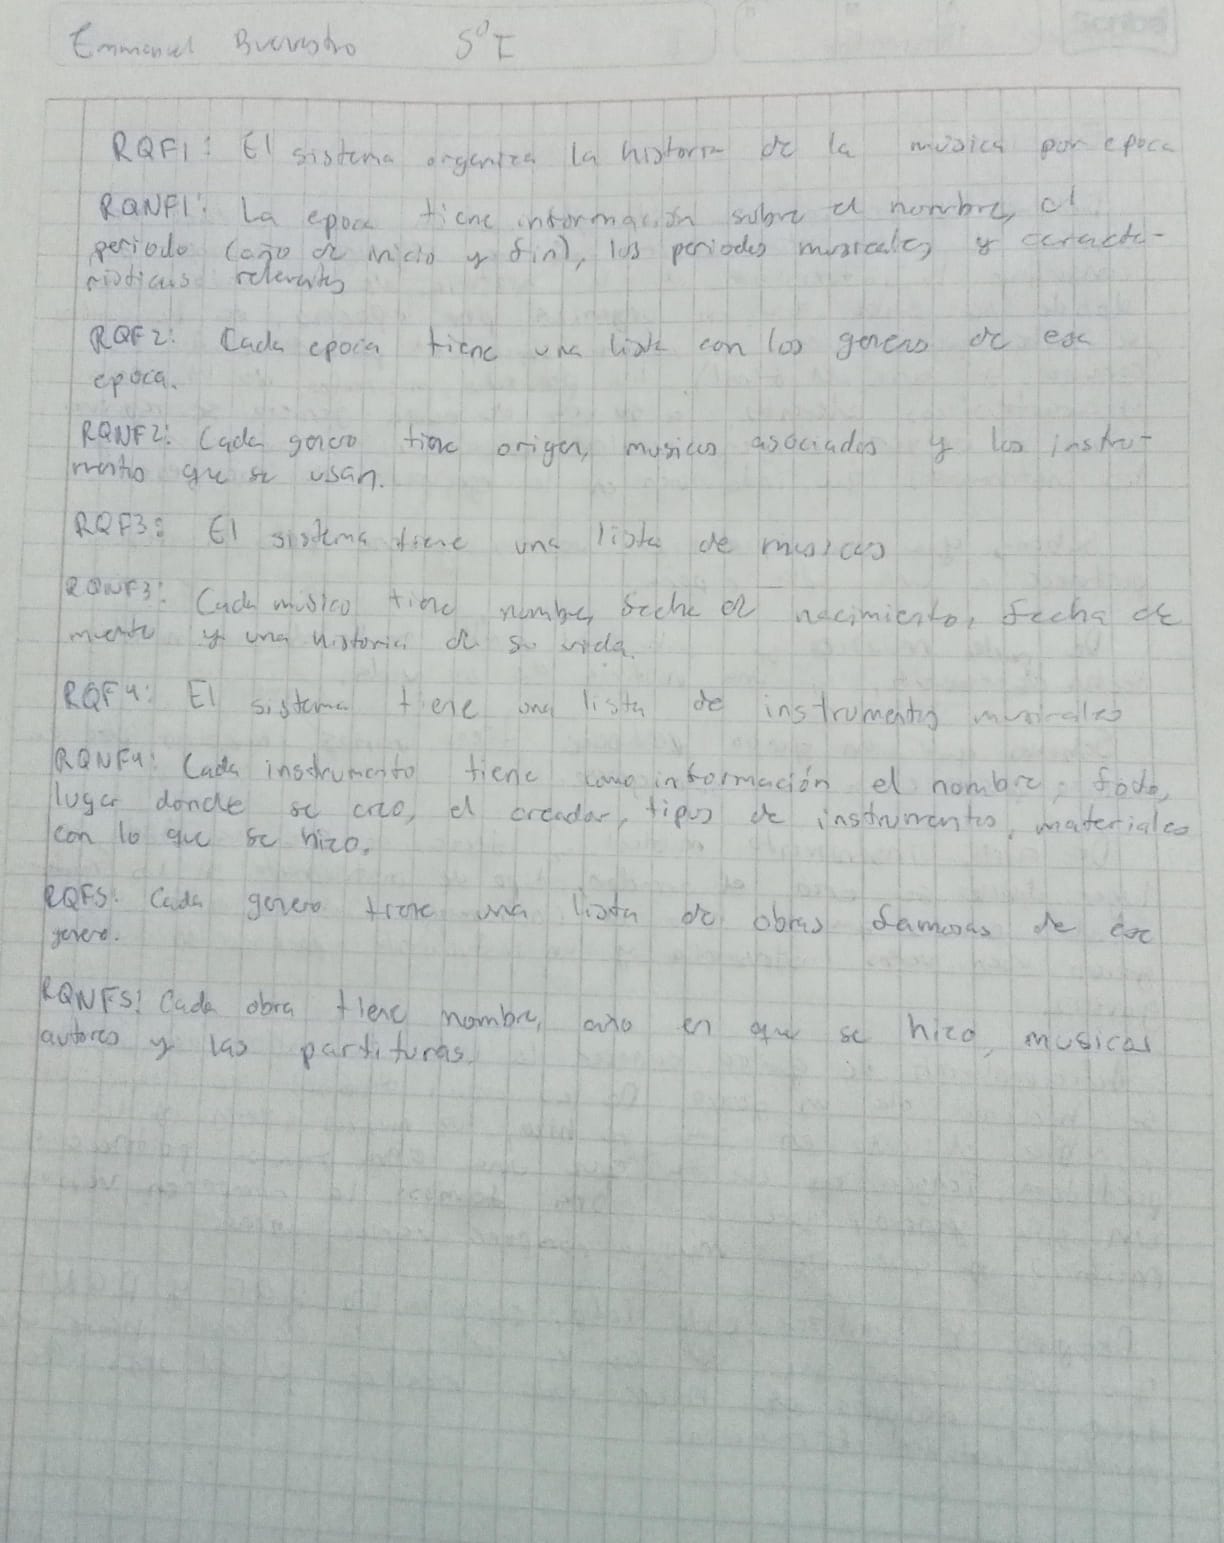 Emmanuel 5° I
Scribe
RQF1: El sistema organiza la historia de la música por epoca
RQNF1: La epoca tiene información sobre el nombre, el
periodo (año de inicio y fin), los periodos musicales y caracte-
risticas relevantes
RQF2: Cada epoca tiene una lista con los generos de esa
epoca.
RQNF2: Cada genero tiene origen, musicos asociados y los instru-
mentos que se usan.
RQF3: El sistema tiene una lista de musicos
RQNF3: Cada musico tiene nombre, fecha de nacimiento, fecha de
muerte y una historia de su vida.
RQF4: El sistema tiene una lista de instrumentos musicales
RQNF4: Cada instrumento tiene como información el nombre, foto,
lugar donde se creo, el creador, tipos de instrumentos, materiales
con lo que se hizo.
RQF5: Cada genero tiene una lista de obras famosas de ese
genero.
RQNF5: Cada obra tiene nombre, año en que se hizo, musicos
autores y las partituras.